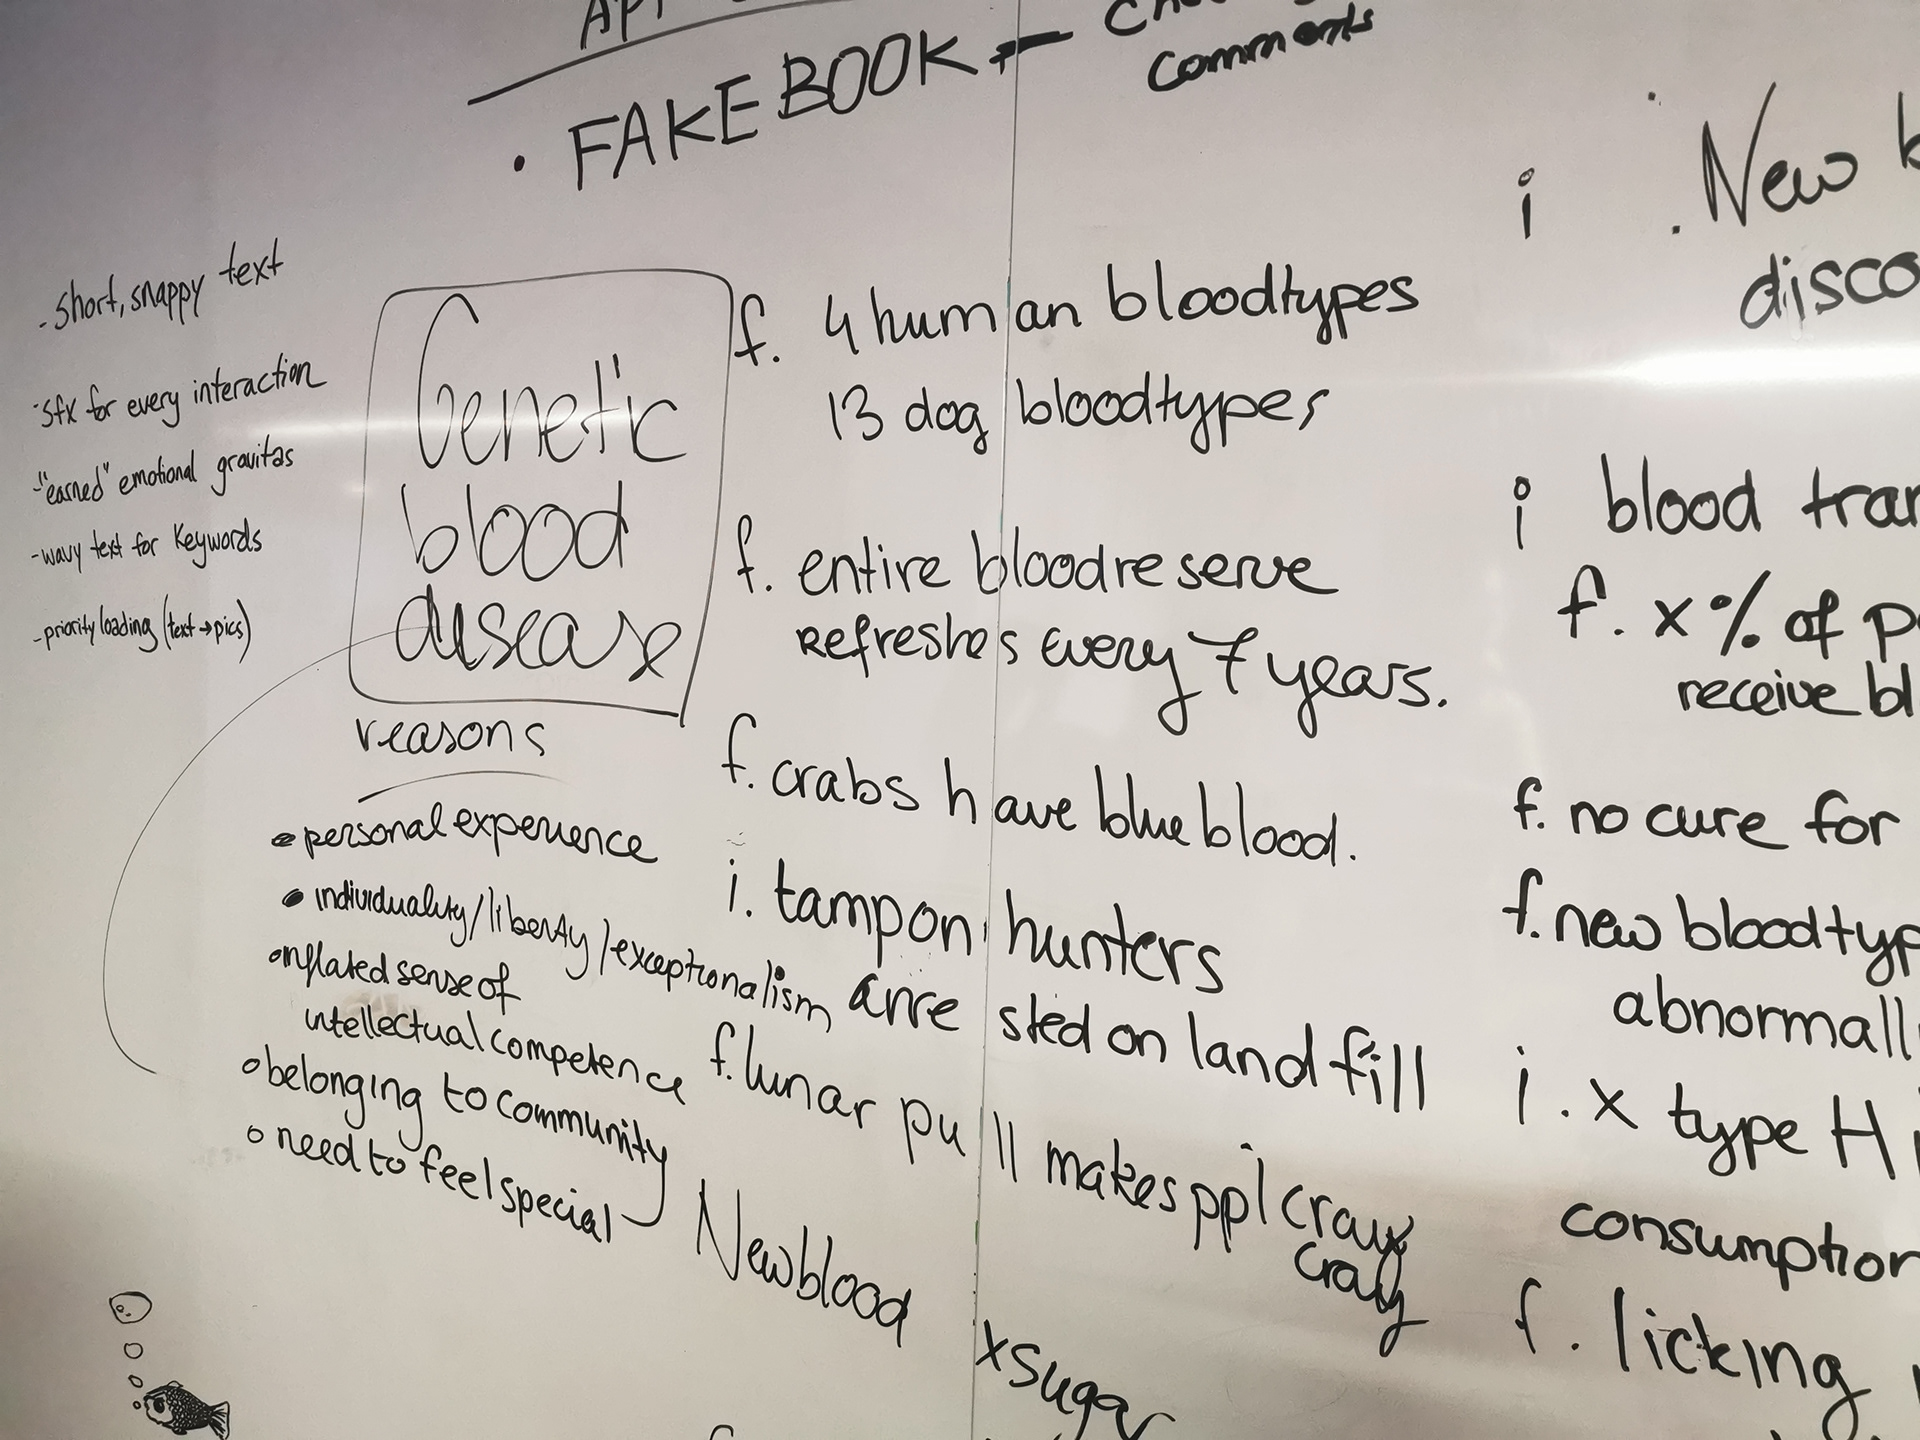 · FAKEBOOK -
comments
- short, snappy text
- sfx for every interaction
- "earned" emotional gravitas
- wavy text for keywords
- priority loading (text → pics)
Genetic
blood
disease
reasons
• personal experience
• individuality/liberty/exceptionalism
• inflated sense of
intellectual competence
○ belonging to community
○ need to feel special
Newblood
f. 4 human bloodtypes
13 dog bloodtypes
f. entire bloodreserve
Refreshes every 7 years.
f. crabs have blue blood.
i. tampon hunters
arrested on landfill
f. lunar pull makes ppl cray
cray
x sugar
i . New
i blood
f. x % of
receive
f. no cure for
f. new
i. x type H
consumption
f. licking